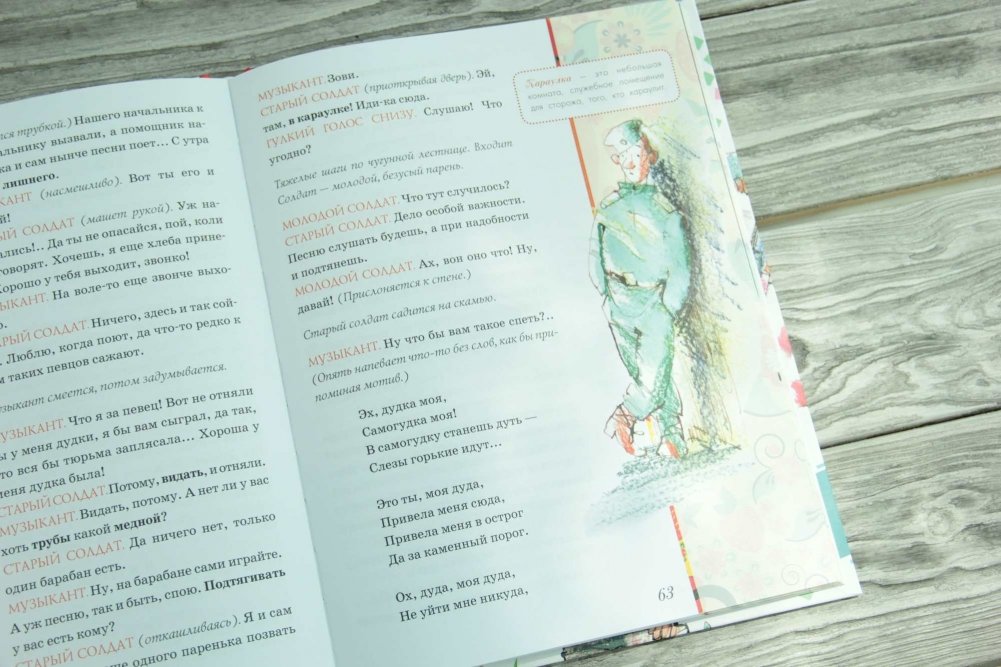 трубкой.) Нашего начальника к
вызвали, а помощник на-
и сам нынче песни поет... С утра
лишнего.
(насмешливо). Вот ты его и
СОЛДАТ (машет рукой). Уж на-
Да ты не опасайся, пой, коли
говорят. Хочешь, я еще хлеба прине-
Хорошо у тебя выходит, звонко!
На воле-то еще звонче выхо-
СОЛДАТ. Ничего, здесь и так сой-
Люблю, когда поют, да что-то редко к
таких певцов сажают.
смеется, потом задумывается.
Что я за певец! Вот не отняли
у меня дудки, я бы вам сыграл, да так,
вся бы тюрьма заплясала... Хороша у
меня дудка была!
СТАРЫЙ СОЛДАТ. Потому, видать, и отняли.
МУЗЫКАНТ. Видать, потому. А нет ли у вас
хоть трубы какой медной?
СТАРЫЙ СОЛДАТ. Да ничего нет, только
один барабан есть.
МУЗЫКАНТ. Ну, на барабане сами играйте.
А уж песню, так и быть, спою. Подтягивать
у вас есть кому?
СТАРЫЙ СОЛДАТ (откашливаясь). Я и сам
одного паренька позвать
МУЗЫКАНТ. Зови.
СТАРЫЙ СОЛДАТ (приоткрывая дверь). Эй,
там, в караулке! Иди-ка сюда.
ГУЛКИЙ ГОЛОС СНИЗУ. Слушаю! Что
угодно?
Тяжелые шаги по чугунной лестнице. Входит
Солдат — молодой, безусый парень.
МОЛОДОЙ СОЛДАТ. Что тут случилось?
СТАРЫЙ СОЛДАТ. Дело особой важности.
Песню слушать будешь, а при надобности
и подтянешь.
МОЛОДОЙ СОЛДАТ. Ах, вон оно что! Ну,
давай! (Прислоняется к стене.)
Старый солдат садится на скамью.
МУЗЫКАНТ. Ну что бы вам такое спеть?..
(Опять напевает что-то без слов, как бы при-
поминая мотив.)
Эх, дудка моя,
Самогудка моя!
В самогудку станешь дуть —
Слезы горькие идут...
Это ты, моя дуда,
Привела меня сюда,
Привела меня в острог
Да за каменный порог.
Ох, дуда, моя дуда,
Не уйти мне никуда,
63
Караулка — это небольшая
комната, служебное помещение
для сторожа, того, кто караулит.